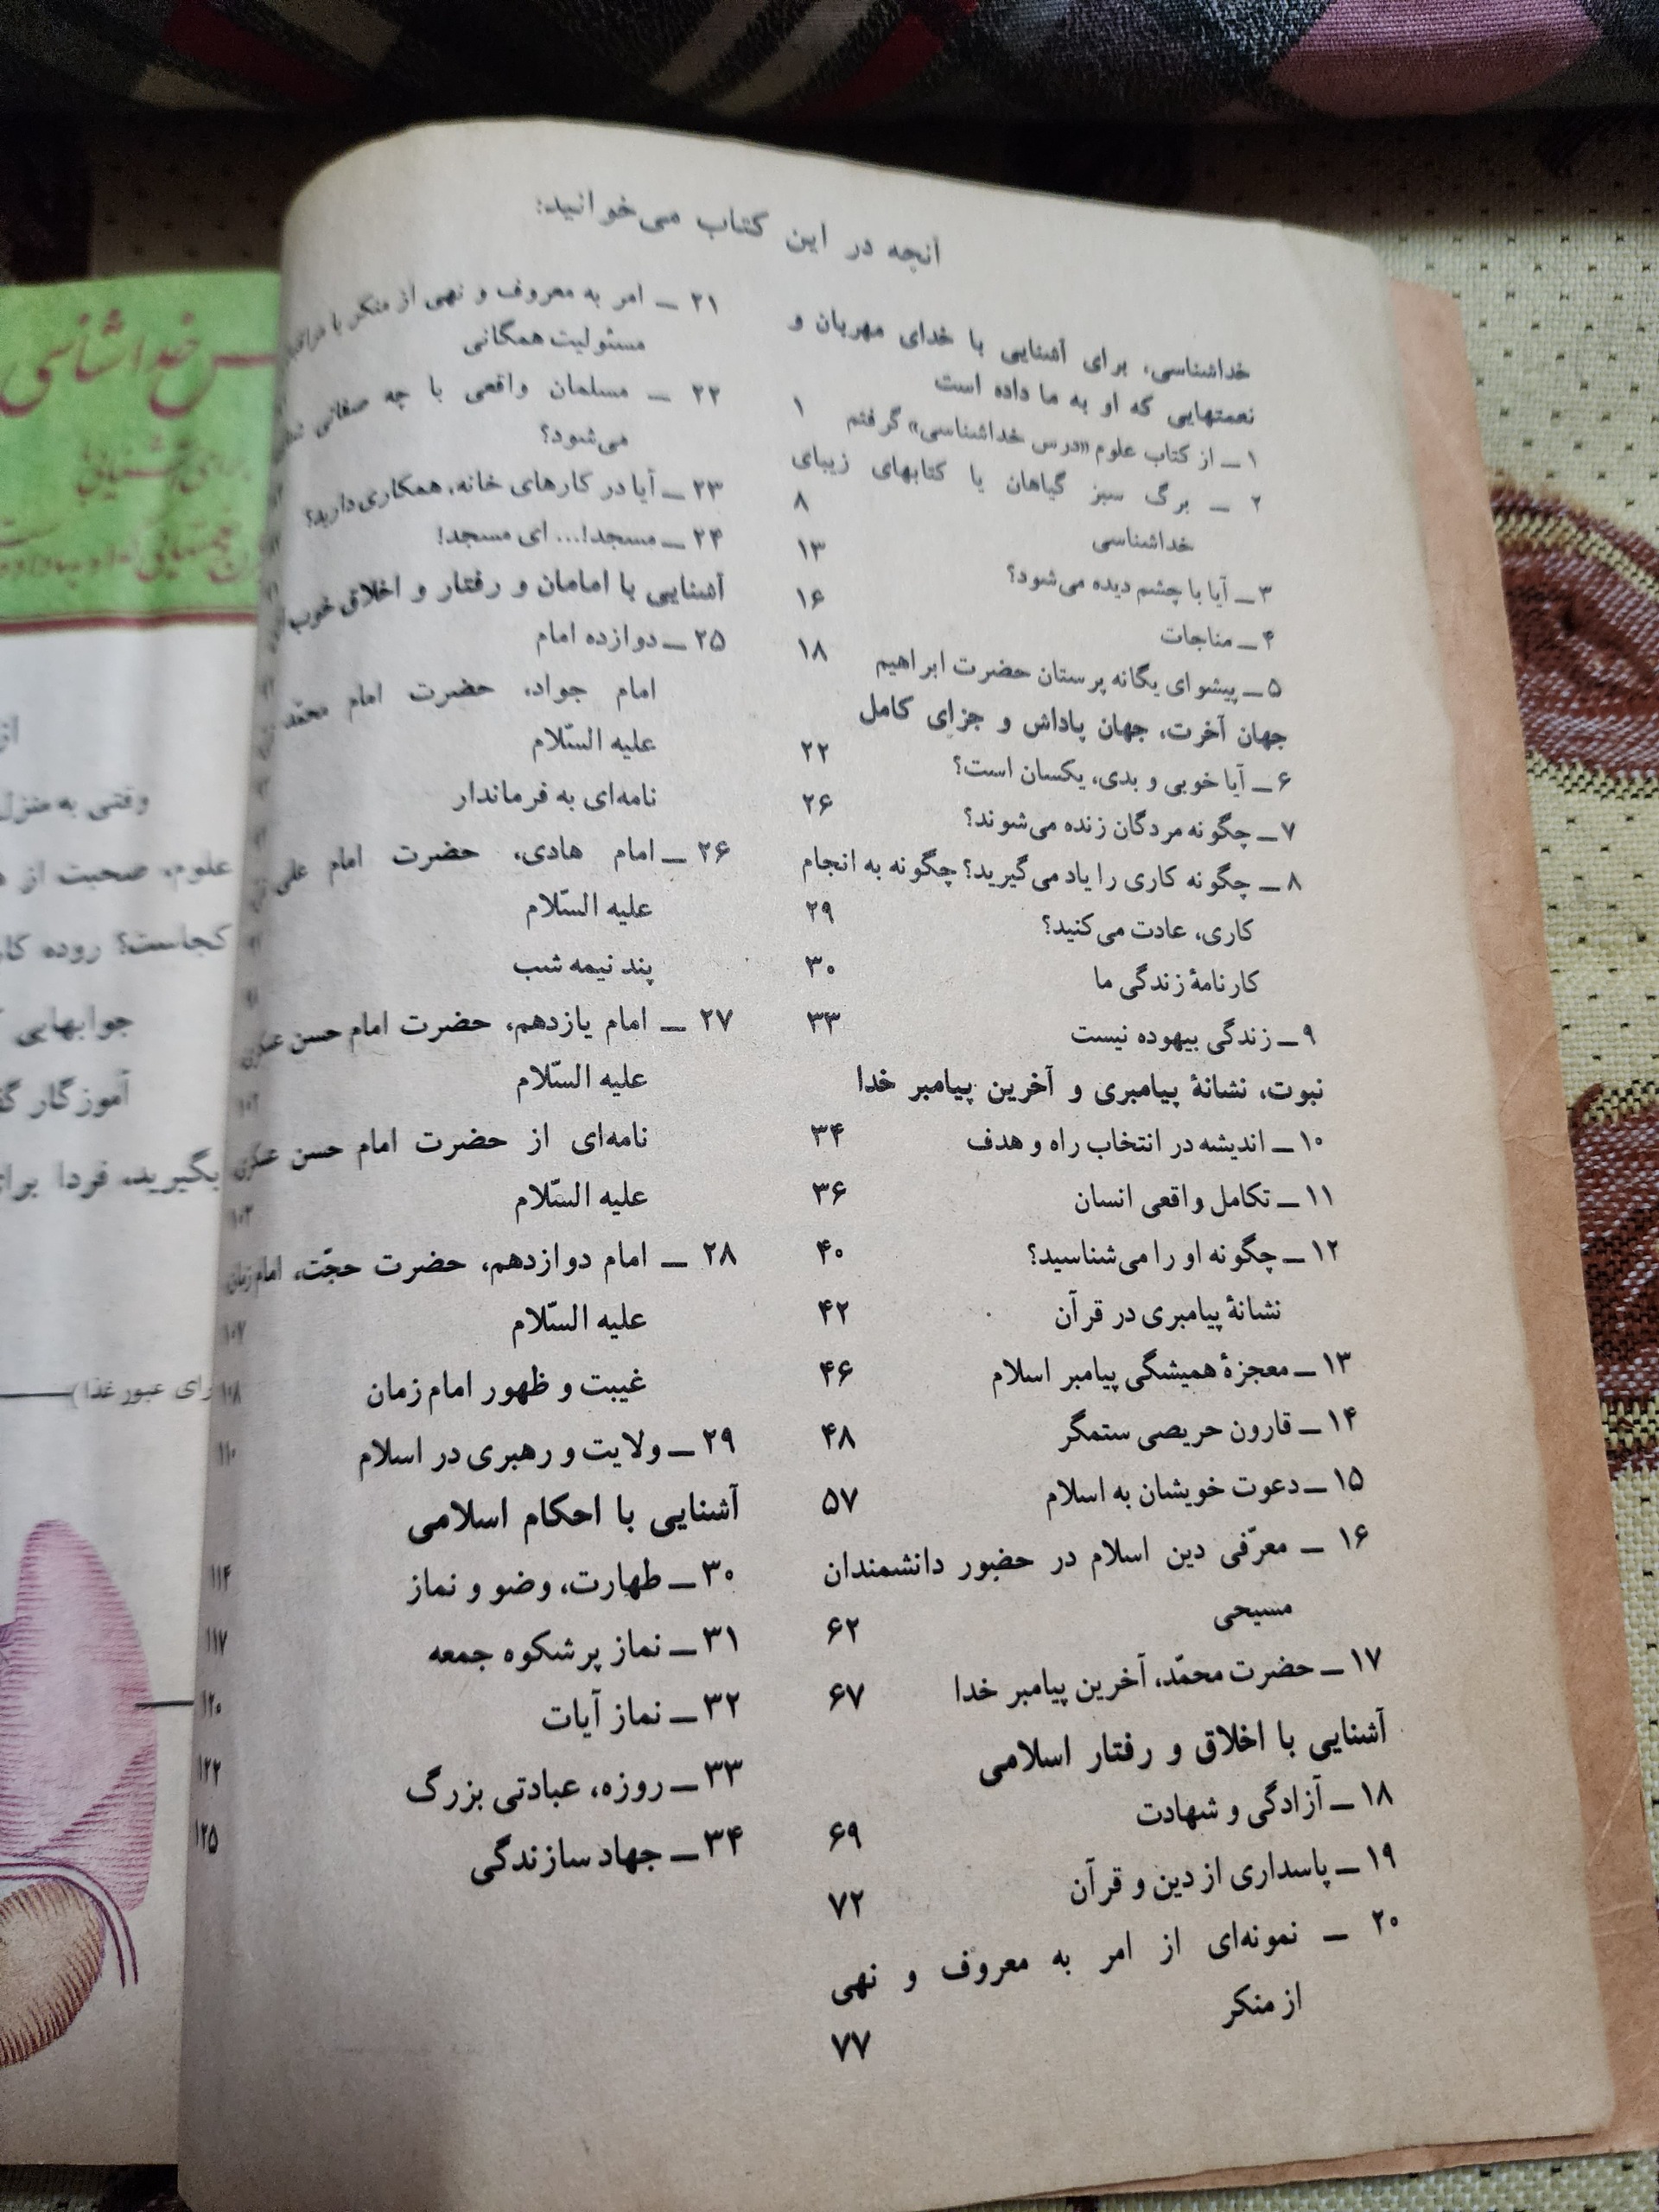 آنچه در این کتاب می‌خوانید:
خداشناسی، برای آشنایی با خدای مهربان و
نعمتهایی که او به ما داده است
۱ـ از کتاب علوم «درس خداشناسی» گرفتم ۱
۲ ـ برگ سبز گیاهان یا کتابهای زیبای
خداشناسی ۸
۳ـ آیا با چشم دیده می‌شود؟ ۱۳
۴ـ مناجات ۱۶
۵ـ پیشوای یگانه پرستان حضرت ابراهیم ۱۸
جهان آخرت، جهان پاداش و جزای کامل
۶ـ آیا خوبی و بدی، یکسان است؟ ۲۲
۷ـ چگونه مردگان زنده می‌شوند؟ ۲۶
۸ـ چگونه کاری را یاد می‌گیرید؟ چگونه به انجام
کاری، عادت می‌کنید؟ ۲۹
کارنامهٔ زندگی ما ۳۰
۹ـ زندگی بیهوده نیست ۳۳
نبوت، نشانهٔ پیامبری و آخرین پیامبر خدا
۱۰ـ اندیشه در انتخاب راه و هدف ۳۴
۱۱ـ تکامل واقعی انسان ۳۶
۱۲ـ چگونه او را می‌شناسید؟ ۴۰
نشانهٔ پیامبری در قرآن ۴۲
۱۳ـ معجزهٔ همیشگی پیامبر اسلام ۴۶
۱۴ـ قارون حریصی ستمگر ۴۸
۱۵ـ دعوت خویشان به اسلام ۵۷
۱۶ ـ معرّفی دین اسلام در حضور دانشمندان
مسیحی ۶۲
۱۷ـ حضرت محمّد، آخرین پیامبر خدا ۶۷
آشنایی با اخلاق و رفتار اسلامی
۱۸ـ آزادگی و شهادت ۶۹
۱۹ـ پاسداری از دین و قرآن ۷۲
۲۰ ـ نمونه‌ای از امر به معروف و نهی
از منکر ۷۷
۲۱ ـ امر به معروف و نهی از منکر یا
مسئولیت همگانی
۲۲ ـ مسلمان واقعی با چه صفاتی
می‌شود؟
۲۳ـ آیا در کارهای خانه، همکاری دارید؟
۲۴ـ مسجد!... ای مسجد!
آشنایی با امامان و رفتار و اخلاق خوب
۲۵ـ دوازده امام
امام جواد، حضرت امام محمّد
علیه السّلام
نامه‌ای به فرماندار
۲۶ـ امام هادی، حضرت امام علی
علیه السّلام
پند نیمه شب
۲۷ ـ امام یازدهم، حضرت امام حسن عسکری
علیه السّلام ۱۰۲
نامه‌ای از حضرت امام حسن عسکری
علیه السّلام ۱۰۳
۲۸ ـ امام دوازدهم، حضرت حجّت، امام زمان
علیه السّلام ۱۰۷
غیبت و ظهور امام زمان ۱۰۸
۲۹ـ ولایت و رهبری در اسلام ۱۱۰
آشنایی با احکام اسلامی
۳۰ـ طهارت، وضو و نماز ۱۱۴
۳۱ـ نماز پرشکوه جمعه ۱۱۷
۳۲ـ نماز آیات ۱۲۰
۳۳ـ روزه، عبادتی بزرگ ۱۲۲
۳۴ـ جهاد سازندگی ۱۲۵
خداشناسی
برای
وقتی به منزل
علوم، صحبت از
کجاست؟ روده
جوابهایی
آموزگار
بگیرید، فردا
برای عبور غذا)